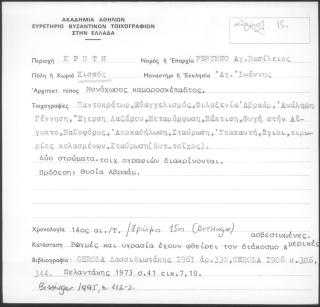 ΑΚΑΔΗΜΙΑ ΑΘΗΝΩΝ
ΕΥΡΕΤΗΡΙΟ ΒΥΖΑΝΤΙΝΩΝ ΤΟΙΧΟΓΡΑΦΙΩΝ
ΣΤΗΝ ΕΛΛΑΔΑ
Περιοχή ΚΡΗΤΗ Νομός ή Ἐπαρχία ΡΕΘΥΜΝΟ Αγ.Βασίλειος
Πόλη ή Χωριό Κισσός Μοναστήρι ή Ἐκκλησία "Αγ. Ἰωάννης
Ἀρχιτεκτ. τύπος Μονόχωρος καμαροσκέπαστος.
Τοιχογραφίες Παντοκράτωρ, Εὐαγγελισμός, Φιλοξενία Ἀβραάμ, Ἀνάληψη
Γέννηση, Ἔγερση Λαζάρου, Μεταμόρφωση, Βάπτιση, Φυγή στήν Αἴ-
γυπτο, Βαϊοφόρος, Ἀποκαθήλωση, Σταύρωση, Ὑπαπαντή, ἅγιοι, τιμω-
ρίες κολασμένων, Σταύρωση(δυτ.τοῖχος).
Δύο στρώματα τοιχογραφιῶν διακρίνονται.
Πρόθεση: Θυσία Ἀβραάμ.
Χρονολογία 14ος αἰ./Τ.
ἀσβεστωμένες.
Κατάσταση Ρωγμές καί ὑγρασία ἔχουν φθείρει τόν διάκοσμο & μερικές
Βιβλιογραφία: GEROLA Λασσιθιωτάκης 1961 ἀρ.330, GEROLA 1908 σ.306,
344. Πελαντάκης 1973 σ.41 εἰκ.7,10.
Bissinger 1995, σ. 212-3.